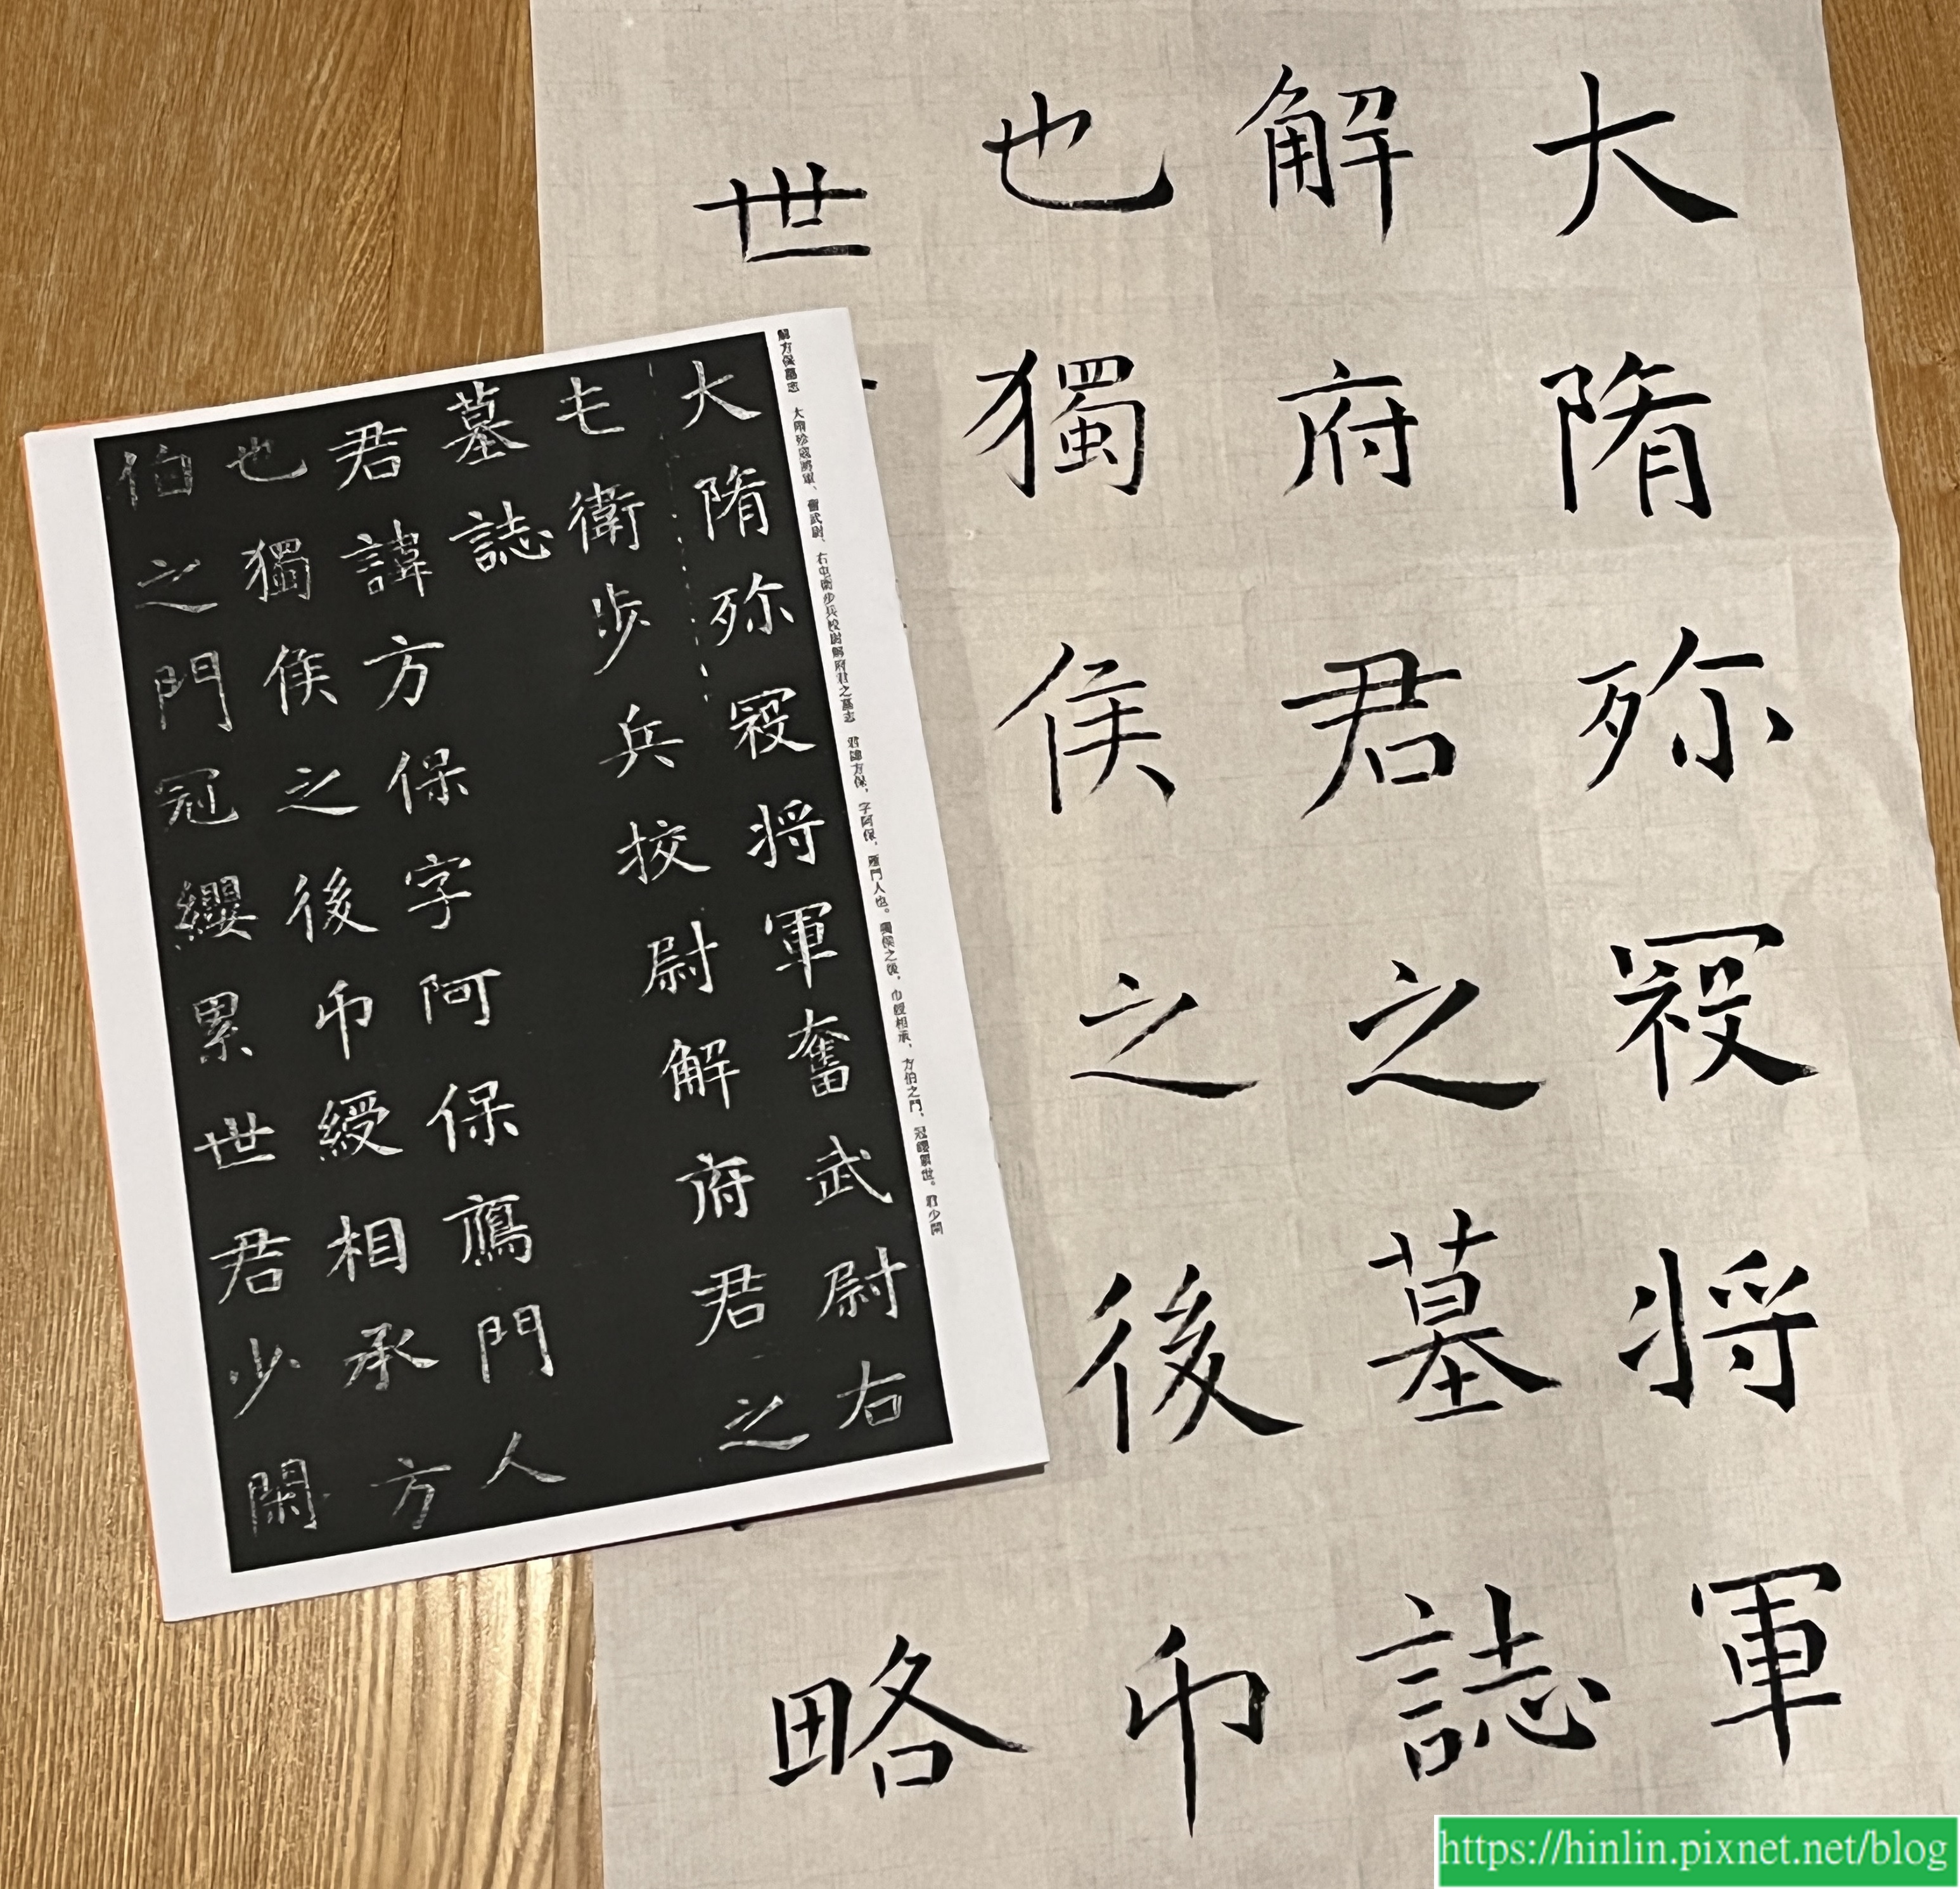 大隋殄冦将軍
解府君之墓誌
也獨侯之後帀
世
略
解方保墓志 大隋殄寇將軍、奮武尉、右屯衛步兵校尉解府君之墓志 君諱方保，字阿保，雁門人也。獨侯之後，巾綬相承，方伯之門，冠纓累世。君少閑
大隋殄冦将軍奮武尉右
屯衛步兵挍尉解府君之
墓誌
君諱方保字阿保鴈門人
也獨侯之後帀綬相承方
伯之門冠纓累世君少閑
https://hinlin.pixnet.net/blog